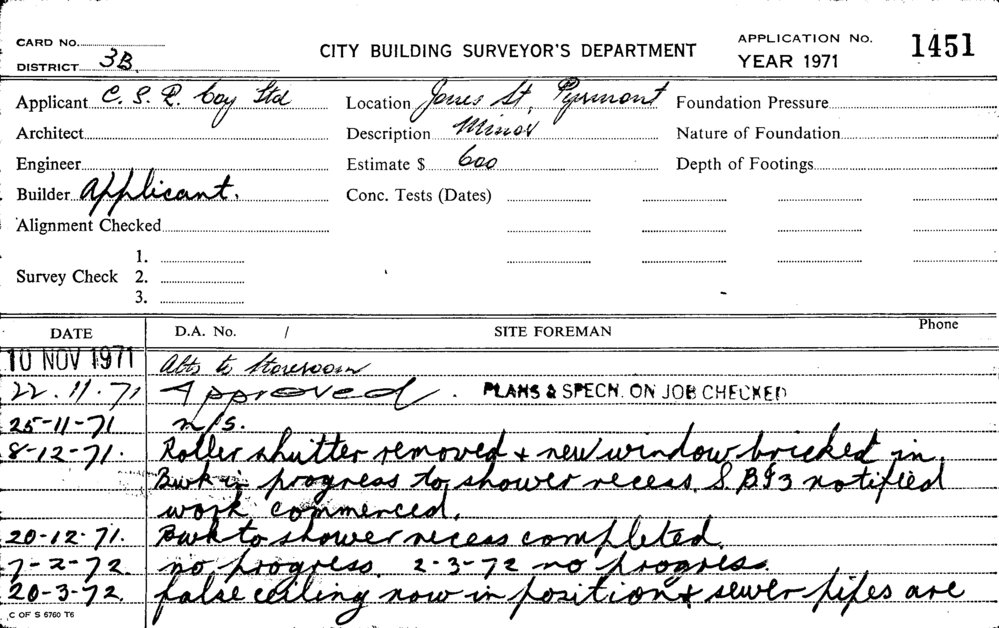 CARD No.
DISTRICT 3B.
CITY BUILDING SURVEYOR'S DEPARTMENT
APPLICATION No. 1451
YEAR 1971
Applicant C. S. R. Coy Ltd
Location Jones St, Pyrmont
Foundation Pressure
Architect
Description Minor
Nature of Foundation
Engineer
Estimate $ 600
Depth of Footings
Builder Applicant.
Conc. Tests (Dates)
Alignment Checked
Survey Check 1.
2.
3.
DATE D.A. No. / SITE FOREMAN Phone
10 NOV 1971 Alts to Storeroom
22.11.71 Approved. PLANS & SPECN. ON JOB CHECKED
25-11-71 n/s.
8-12-71. Roller shutter removed + new window bricked in.
Bwk in progress to shower recess. S.B.I 3 notified
work commenced.
20-12-71. Bwk to shower recess completed.
7-2-72. no progress. 2-3-72 no progress.
20-3-72. false ceiling now in position & sewer pipes are
C OF S 6760 T6